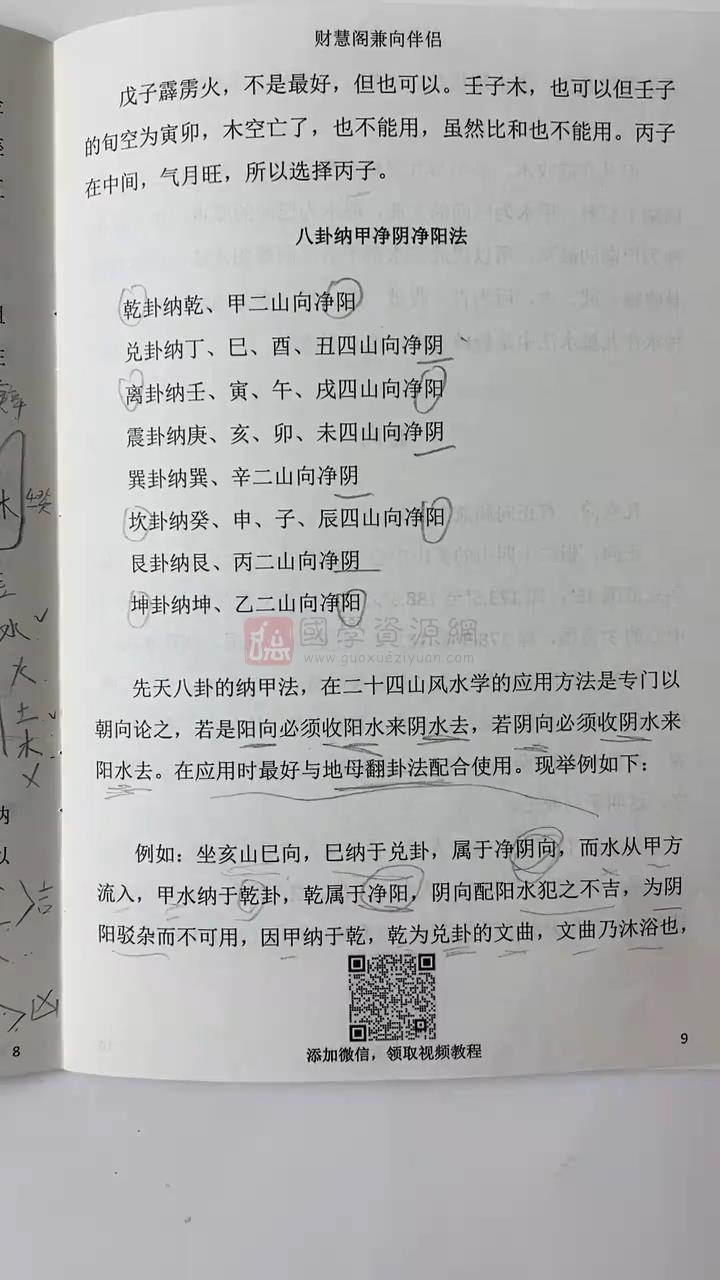 财慧阁兼向伴侣
戊子霹雳火，不是最好，但也可以。壬子木，也可以但壬子
的旬空为寅卯，木空亡了，也不能用，虽然比和也不能用。丙子
在中间，气月旺，所以选择丙子。
八卦纳甲净阴净阳法
乾卦纳乾、甲二山向净阳
兑卦纳丁、巳、酉、丑四山向净阴
离卦纳壬、寅、午、戌四山向净阳
震卦纳庚、亥、卯、未四山向净阴
巽卦纳巽、辛二山向净阴
坎卦纳癸、申、子、辰四山向净阳
艮卦纳艮、丙二山向净阴
坤卦纳坤、乙二山向净阳
國學資源網
www.guoxueziyuan.com
先天八卦的纳甲法，在二十四山风水学的应用方法是专门以
朝向论之，若是阳向必须收阳水来阴水去，若阴向必须收阴水来
阳水去。在应用时最好与地母翻卦法配合使用。现举例如下：
例如：坐亥山巳向，巳纳于兑卦，属于净阴向，而水从甲方
流入，甲水纳于乾卦，乾属于净阳，阴向配阳水犯之不吉，为阴
阳驳杂而不可用，因甲纳于乾，乾为兑卦的文曲，文曲乃沐浴也，
添加微信，领取视频教程
9
8
水
火
土
木
吉
凶